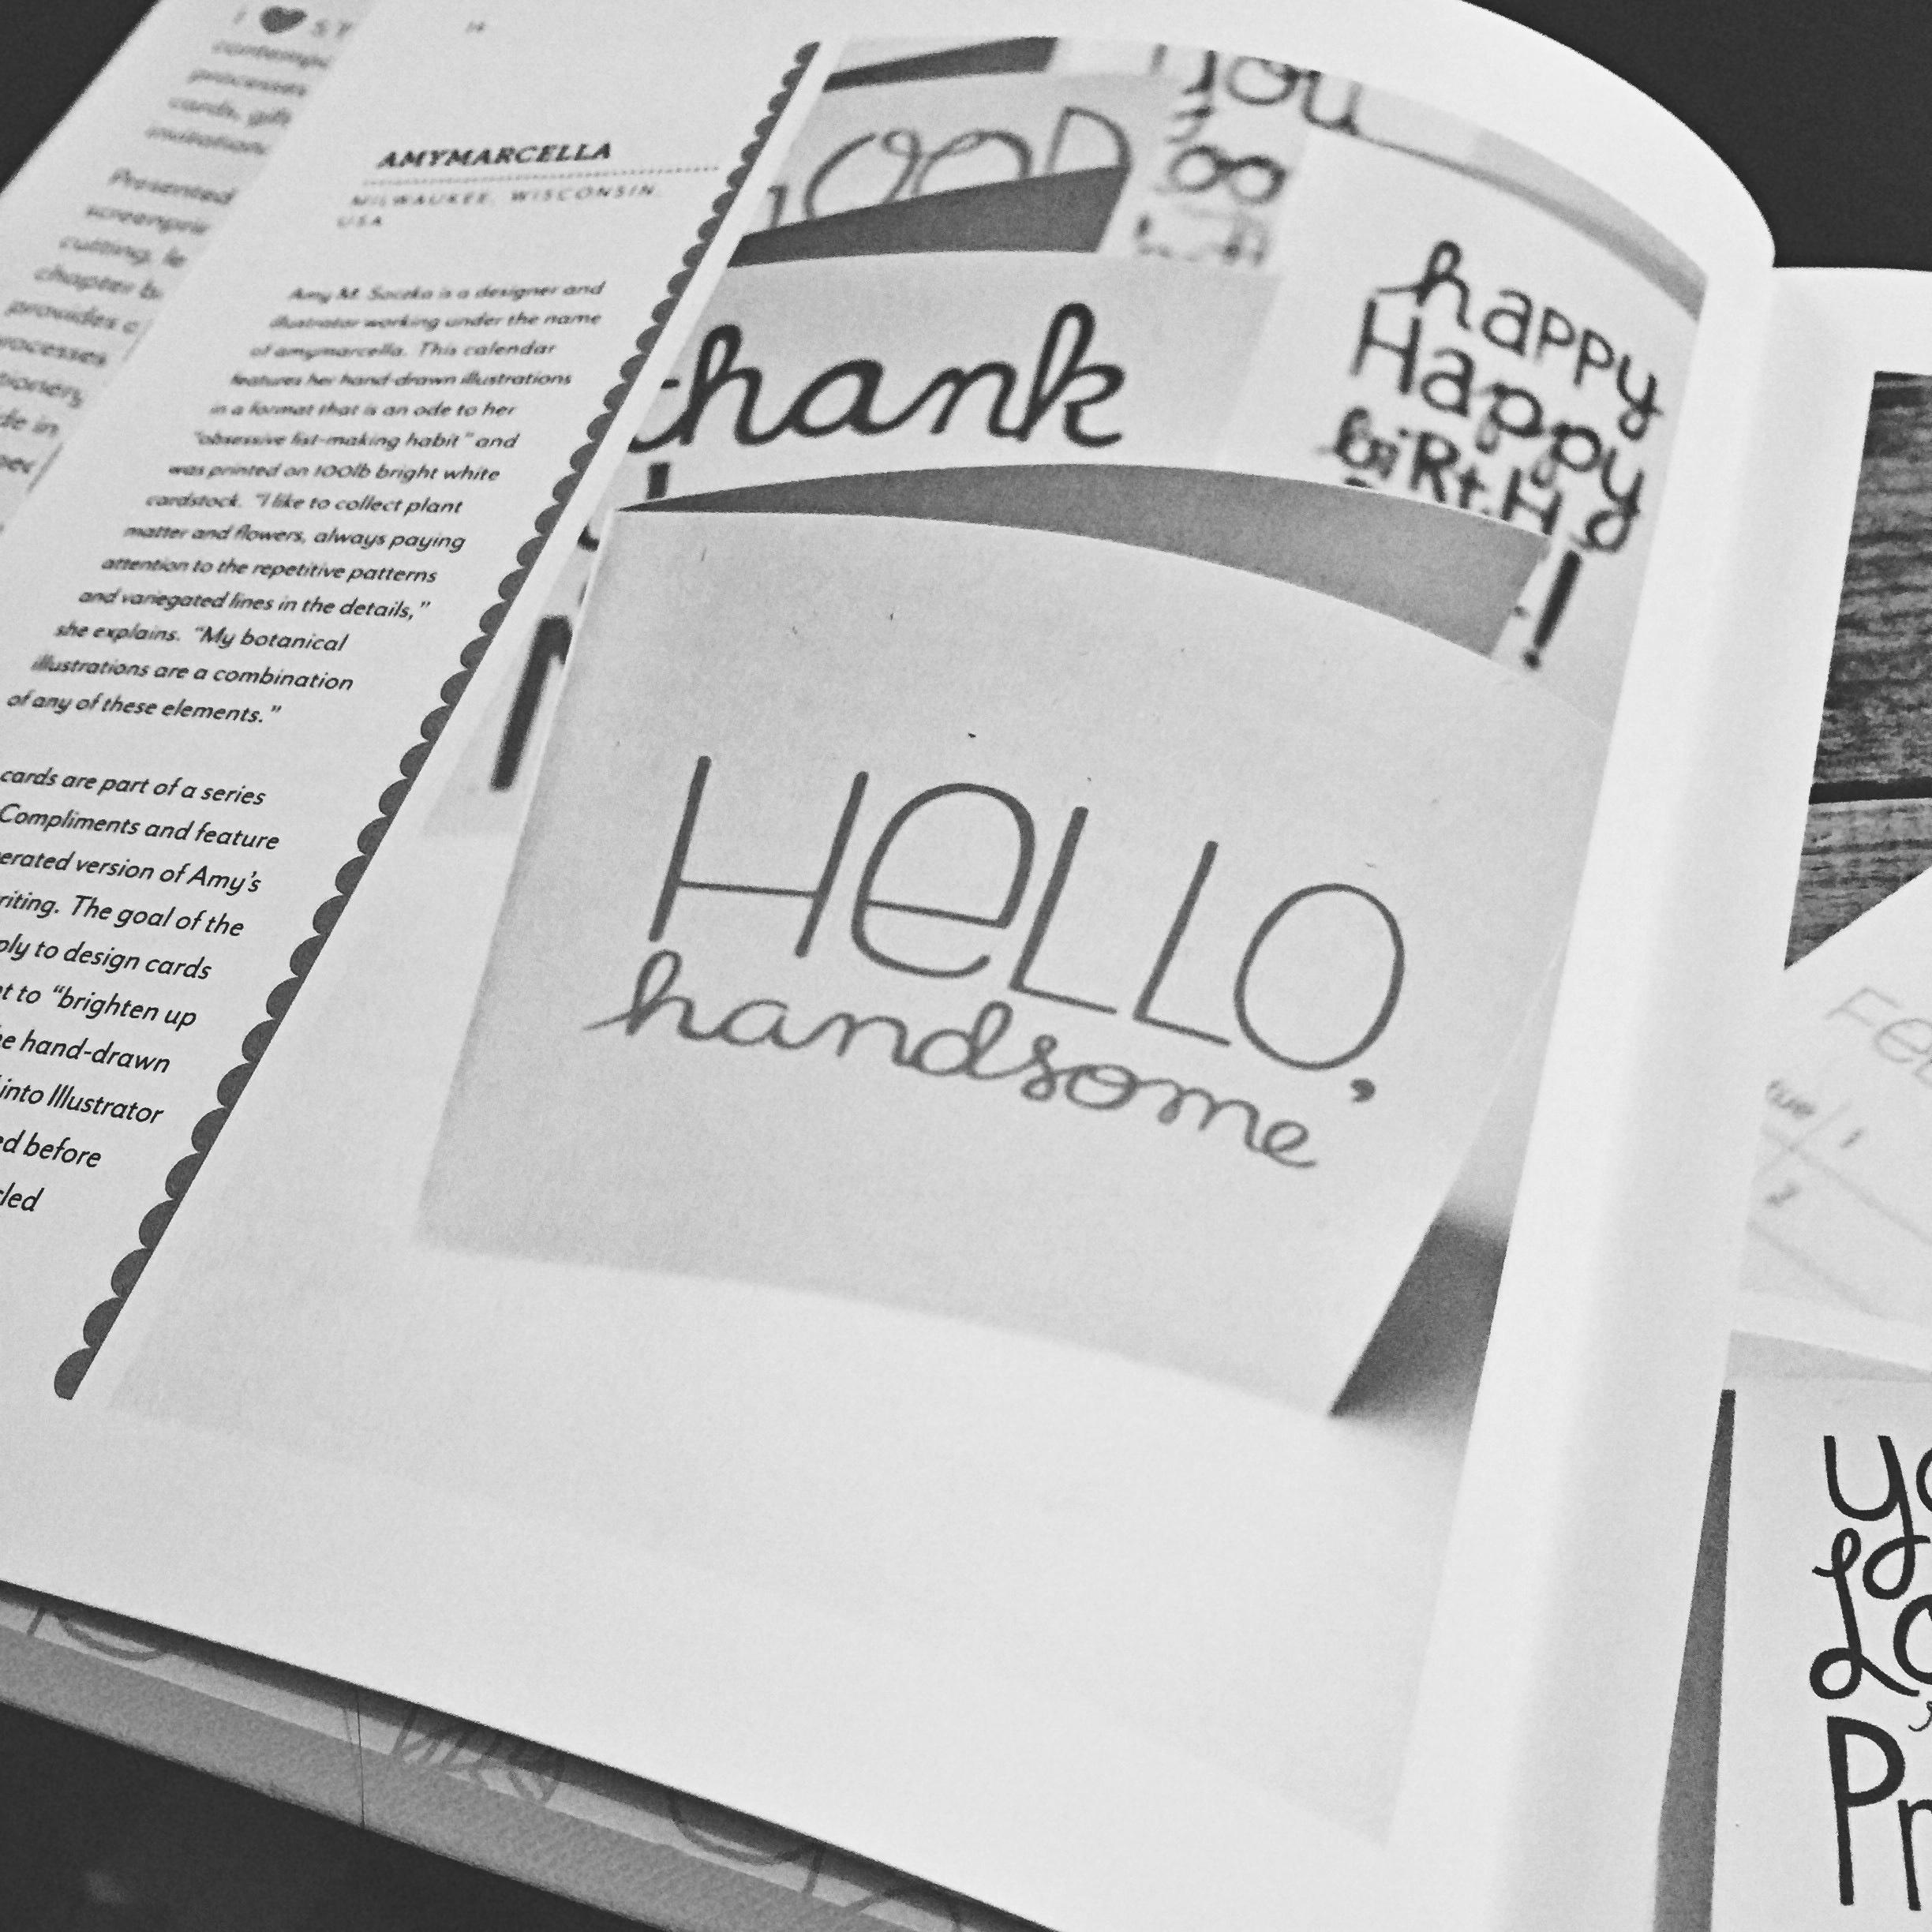 I ♥ ST
contempo
processes
cards, gift
invitation
Presented
screenprin
cutting, le
chapter b
provides a
rocesses
tionery
de in
AMYMARCELLA
MILWAUKEE, WISCONSIN,
USA
Amy M. Soczka is a designer and
illustrator working under the name
of amymarcella. This calendar
features her hand-drawn illustrations
in a format that is an ode to her
"obsessive list-making habit" and
was printed on 100lb bright white
cardstock. "I like to collect plant
matter and flowers, always paying
attention to the repetitive patterns
and variegated lines in the details,"
she explains. "My botanical
illustrations are a combination
of any of these elements."
cards are part of a series
Compliments and feature
erated version of Amy's
riting. The goal of the
ply to design cards
t to "brighten up
e hand-drawn
into Illustrator
ed before
cled
you
OOD
thank
happy
Happy
biRtH
!
HeLLO,
handsome
Fe
tue / 1
2
yo
Lo
Pr